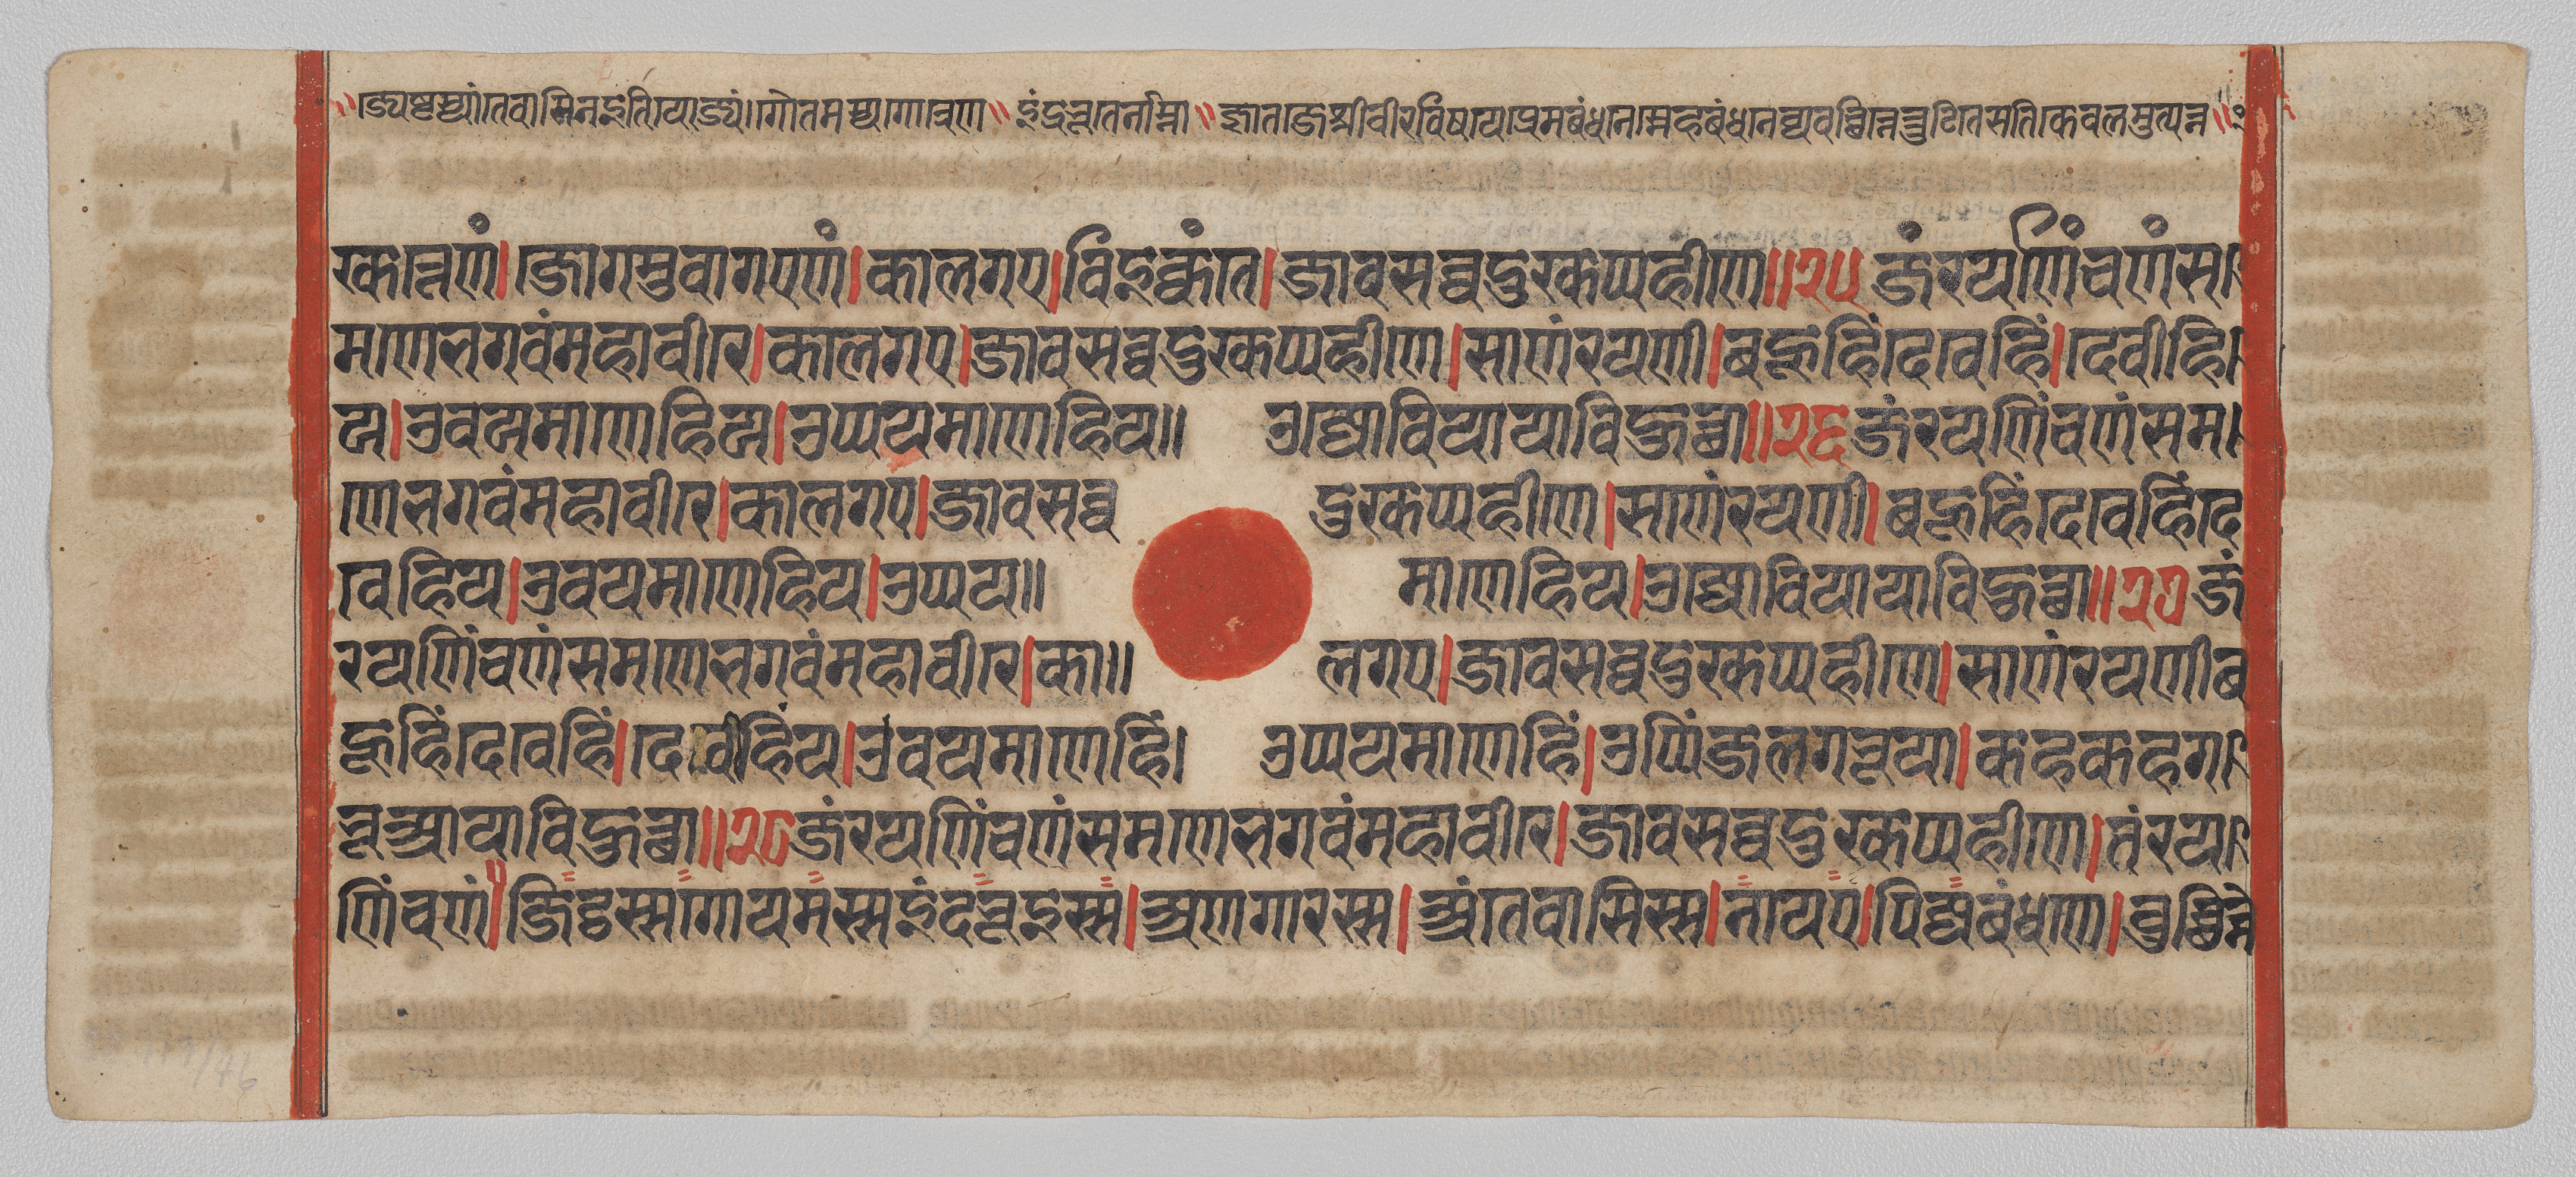 ॥ज्येष्टस्यांतेवासिनइंतिज्ञेयं॥गोतमस्यगोत्रेण॥ इंद्रभूतेर्नाम्ना॥ज्ञातजेश्रीवीरविषयेप्रेमबंधनेस्नेहबंधनेव्यवच्छिन्नेत्रुटितेसतिकेवलमुत्पन्न॥
रकेन्नणं।जोगमुवागएणं।कालगए।विइक्कंते।जावसव्वदुरकप्पहीणे॥२५जंरयणिंचणंस
मणेभगवंमहावीरे।कालगए।जावसव्वदुरकप्पहीणे।साणंरयणी।बहूहिंदेवेहिं।देवीहि
य।उवयमाणेहिय।उप्पयमाणेहिय॥ उज्जोवियायाविहुत्था॥२६जंरयणिंचणंसम
णेभगवंमहावीरे।कालगए।जावसव्व दुरकप्पहीणे।साणंरयणी।बहूहिंदेवेहिंद
वेहिय।उवयमाणेहिय।उप्पय॥ माणेहिय।उज्जोवियायाविहुत्था॥२७जं
रयणिंचणंसमणेभगवंमहावीरे।का॥ लगए।जावसव्वदुरकप्पहीणे।साणंरयणीब
हूहिंदेवेहिं।देवीहिंय।उवयमाणेहिं। उप्पयमाणेहिं।उप्पिंजलगभूया।कहकहग
भूआयाविहुत्था॥२८जंरयणिंचणंसमणेभगवंमहावीरे।जावसव्वदुरकप्पहीणे।तंरय
णिंचणं।जिट्ठस्सगोयमस्सइंदभूइस्स।अणगारस्स।अंतेवासिस्स।नायए।पिज्जबंधणे।वुच्छिन्ने